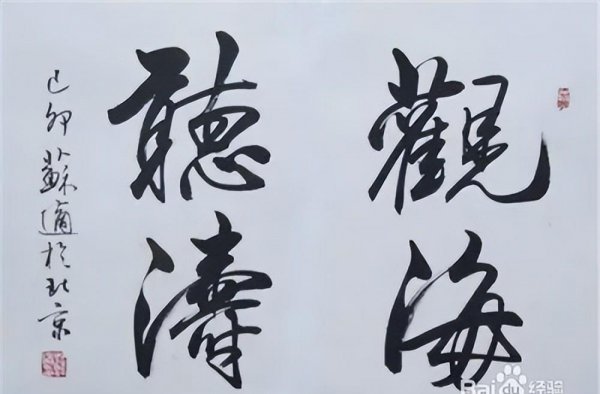 觀海
聽濤
己卯蘇適於北京
Bai 经验